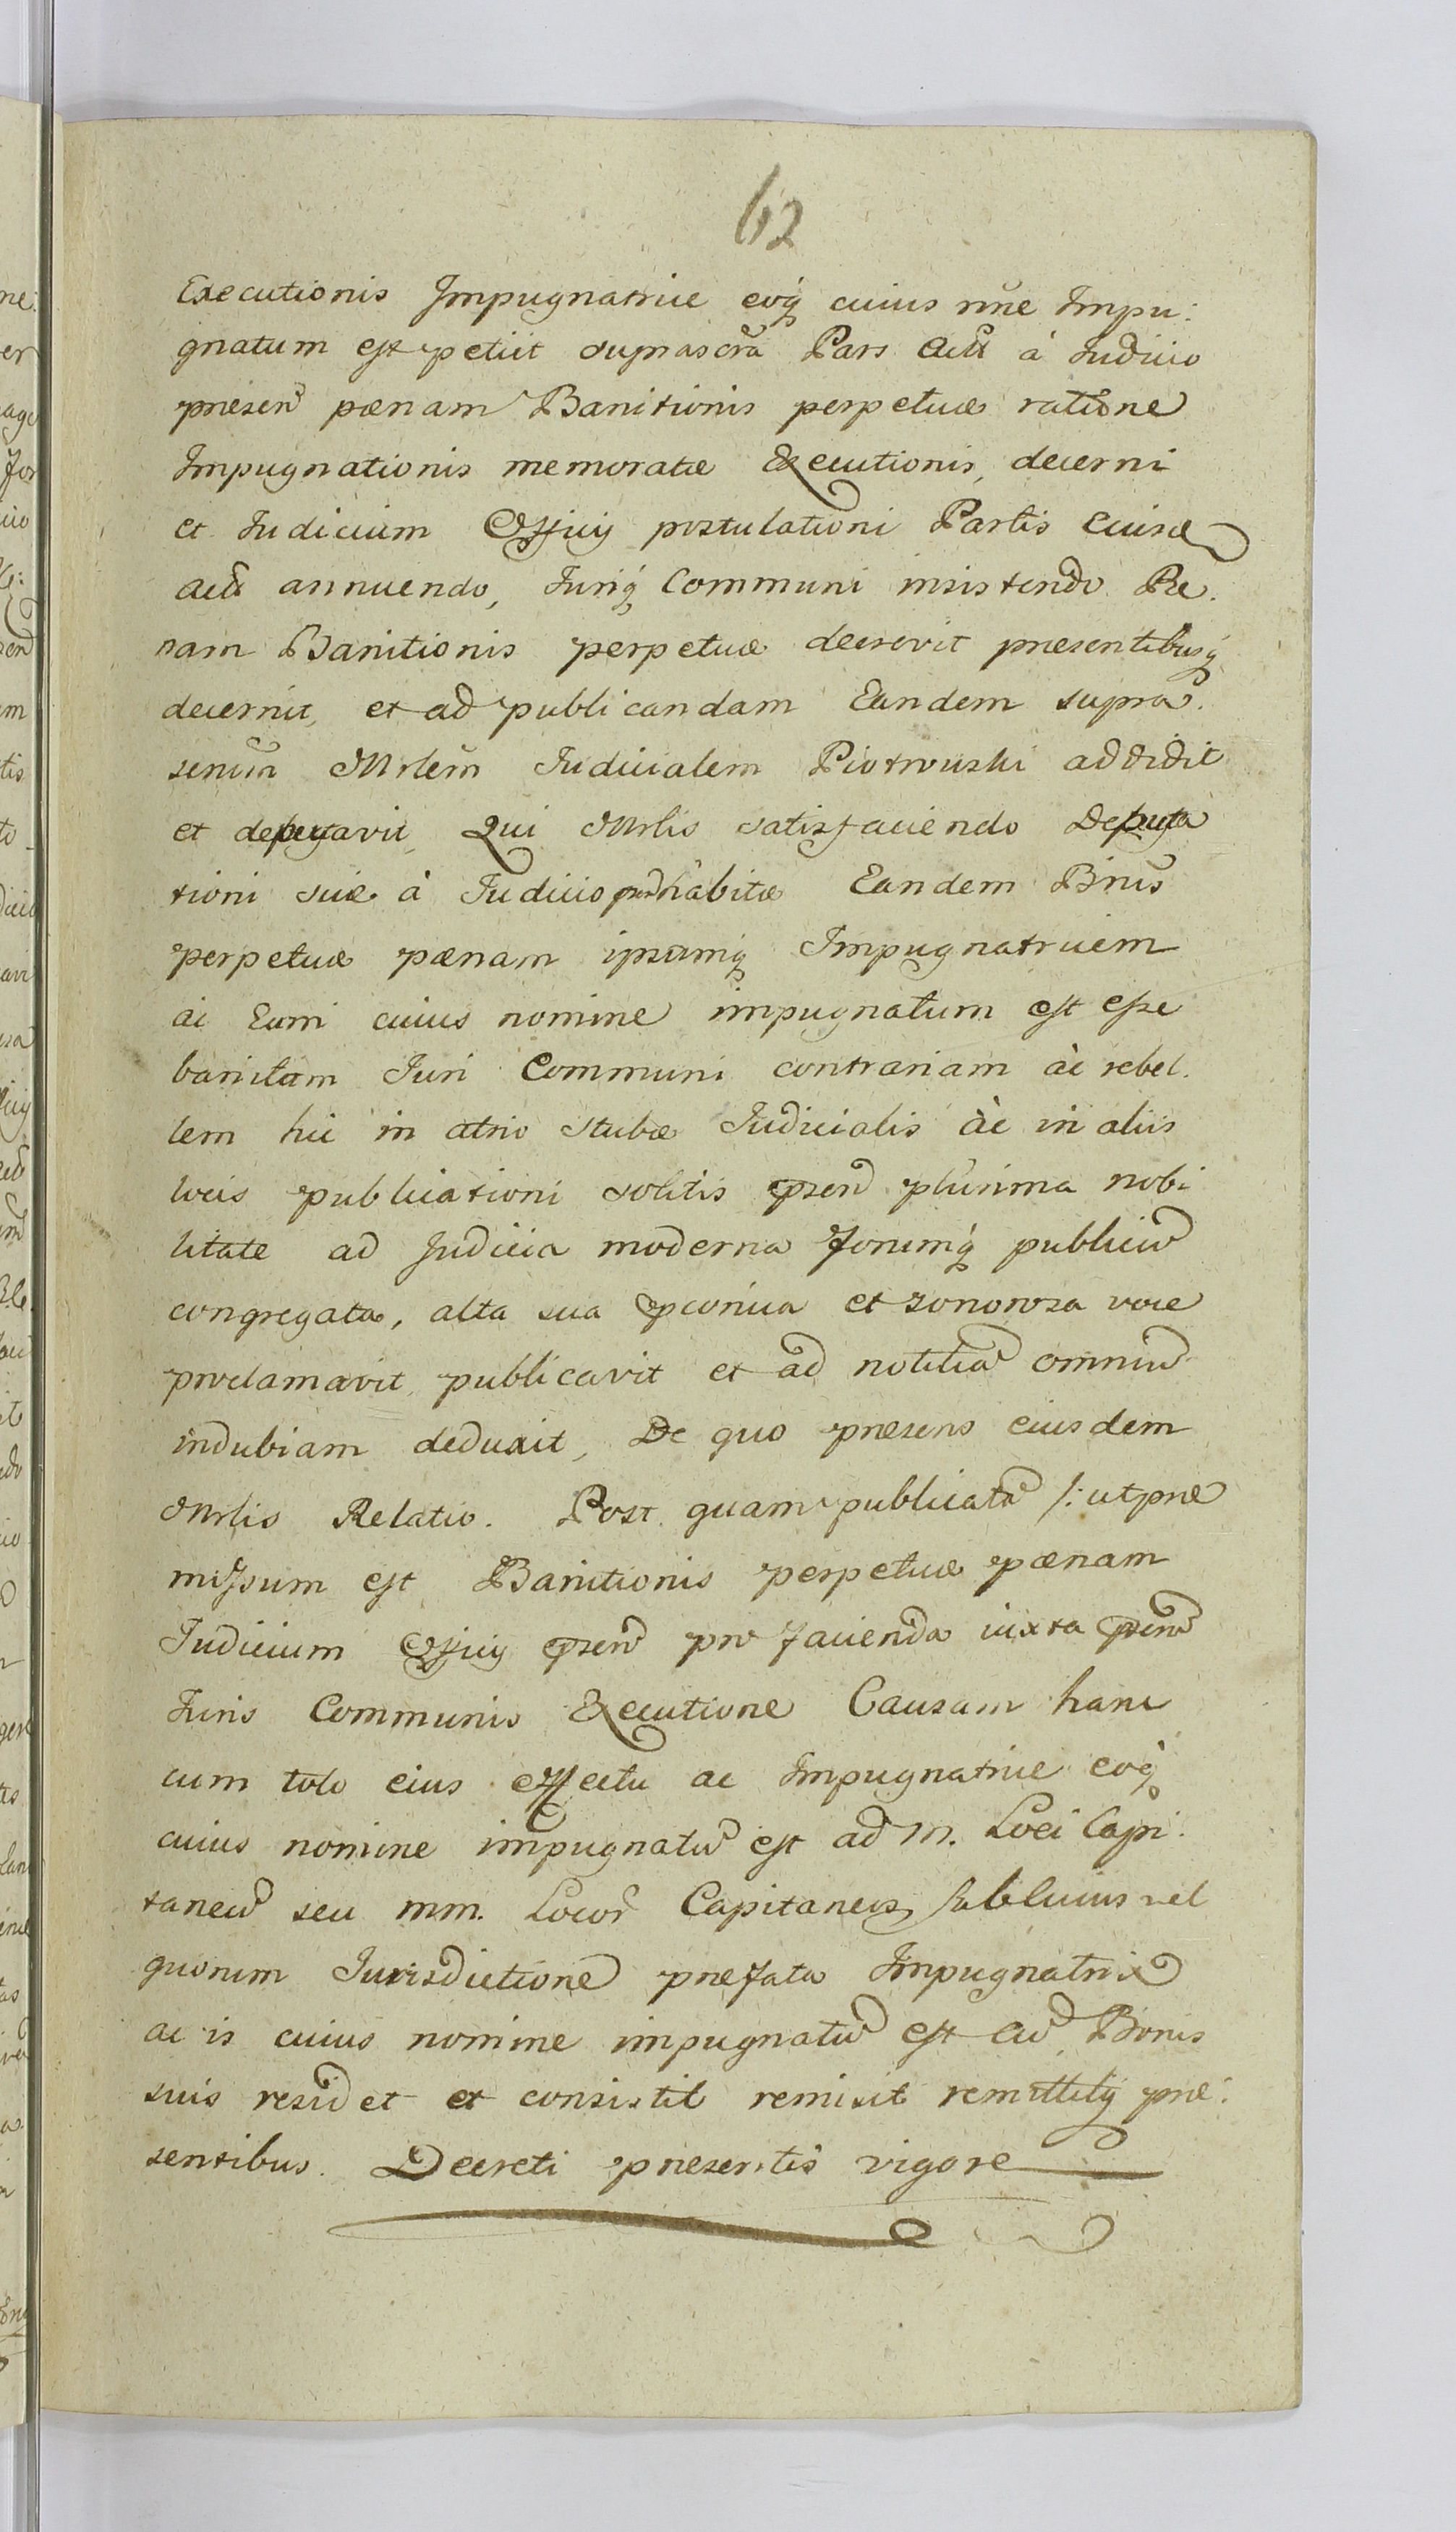 62
Executionis Impugnatrice eoq̃ cuius nñe Impu:
gnatum est petiit suprascrã Pars Act̃ à Iudicio
præsen̄ pænam Banitionis perpetuæ ratione
Impugnationis memoratæ Executionis, decerni
et Iudicium Officij postulationi Partis eiusd̄
act̃ annuendo, Juriq̃ Communi insistendo Pæ.
nam Banitionis perpetuæ decrevit præsentibusq̃
decernit, et ad publicandam Eandem supra.
scriūm Mrlem̃ Iudicialem Piotrowski addidit
et deputavit, Qui Mrlis satisfaciendo Deputa
tioni suæ à Iudicio præhabitæ Eandem Bnĩs
perpetuæ pænam ipsamq̃ Impugnatricem
ac Eum cuius nomine impugnatum est esse
banitam Juri Communi contrariam ac rebel.
lem hic in atrio Stubæ Judicialis ac in aliis
locis publicationi solitis prsen̄ plurima nobi
litate ad Judicia moderna Forumq̃ publicũ
congregata, alta sua præconica et sonorosa voce
proclamavit, publicavit et ad notitiã omniũ
indubiam deduxit, De quo præsens eiusdem
Mrlis Relatio. Post quam publicatã /: ut præ
missum est Banitionis perpetuæ pænam
Iudicium Officij prsen̄ pro facienda iuxta prsen̄
Juris Communis Executione Causam hanc
cum toto eius effectu ac Impugnatrice eoq̃
cuius nomine impugnatũ est ad M. Loci Capi:
taneũ seu MM. Locor̃ Capitaneos sub cuius vel
quorum Jurisdictione præfata Impugnatrix
ac is cuius nomine impugnatũ est cũ Bonis
suis residet et consistit remisit remittitq̃ præ:
sentibus. Decreti præsentis vigore